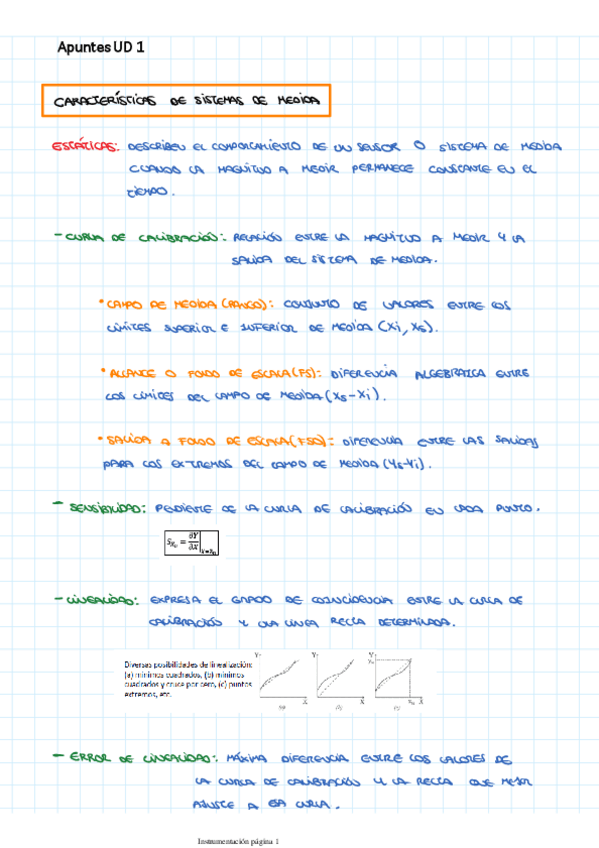 Apuntes UD 1
CARACTERÍSTICAS DE SISTEMAS DE MEDIDA
ESTÁTICAS: DESCRIBEN EL COMPORTAMIENTO DE UN SENSOR O SISTEMA DE MEDIDA
CUANDO LA MAGNITUD A MEDIR PERMANECE CONSTANTE EN EL
TIEMPO.
- CURVA DE CALIBRACIÓN: RELACIÓN ENTRE LA MAGNITUD A MEDIR Y LA
SALIDA DEL SISTEMA DE MEDIDA.
• CAMPO DE MEDIDA (RANGO): CONJUNTO DE VALORES ENTRE LOS
LÍMITES SUPERIOR E INFERIOR DE MEDIDA (Xi, Xs).
• ALCANCE O FONDO DE ESCALA (FS): DIFERENCIA ALGEBRAICA ENTRE
LOS LÍMITES DEL CAMPO DE MEDIDA (Xs-Xi).
• SALIDA A FONDO DE ESCALA (FSO): DIFERENCIA ENTRE LAS SALIDAS
PARA LOS EXTREMOS DEL CAMPO DE MEDIDA (Ys-Yi).
- SENSIBILIDAD: PENDIENTE DE LA CURVA DE CALIBRACIÓN EN CADA PUNTO.
- LINEALIDAD: EXPRESA EL GRADO DE COINCIDENCIA ENTRE LA CURVA DE
CALIBRACIÓN Y UNA LINEA RECTA DETERMINADA.
Diversas posibilidades de linealización:
(a) mínimos cuadrados, (b) mínimos
cuadrados y cruce por cero, (c) puntos
extremos, etc.
- ERROR DE LINEALIDAD: MÁXIMA DIFERENCIA ENTRE LOS VALORES DE
LA CURVA DE CALIBRACIÓN Y LA RECTA QUE MEJOR
AJUSTE A ESA CURVA.
Instrumentación página 1